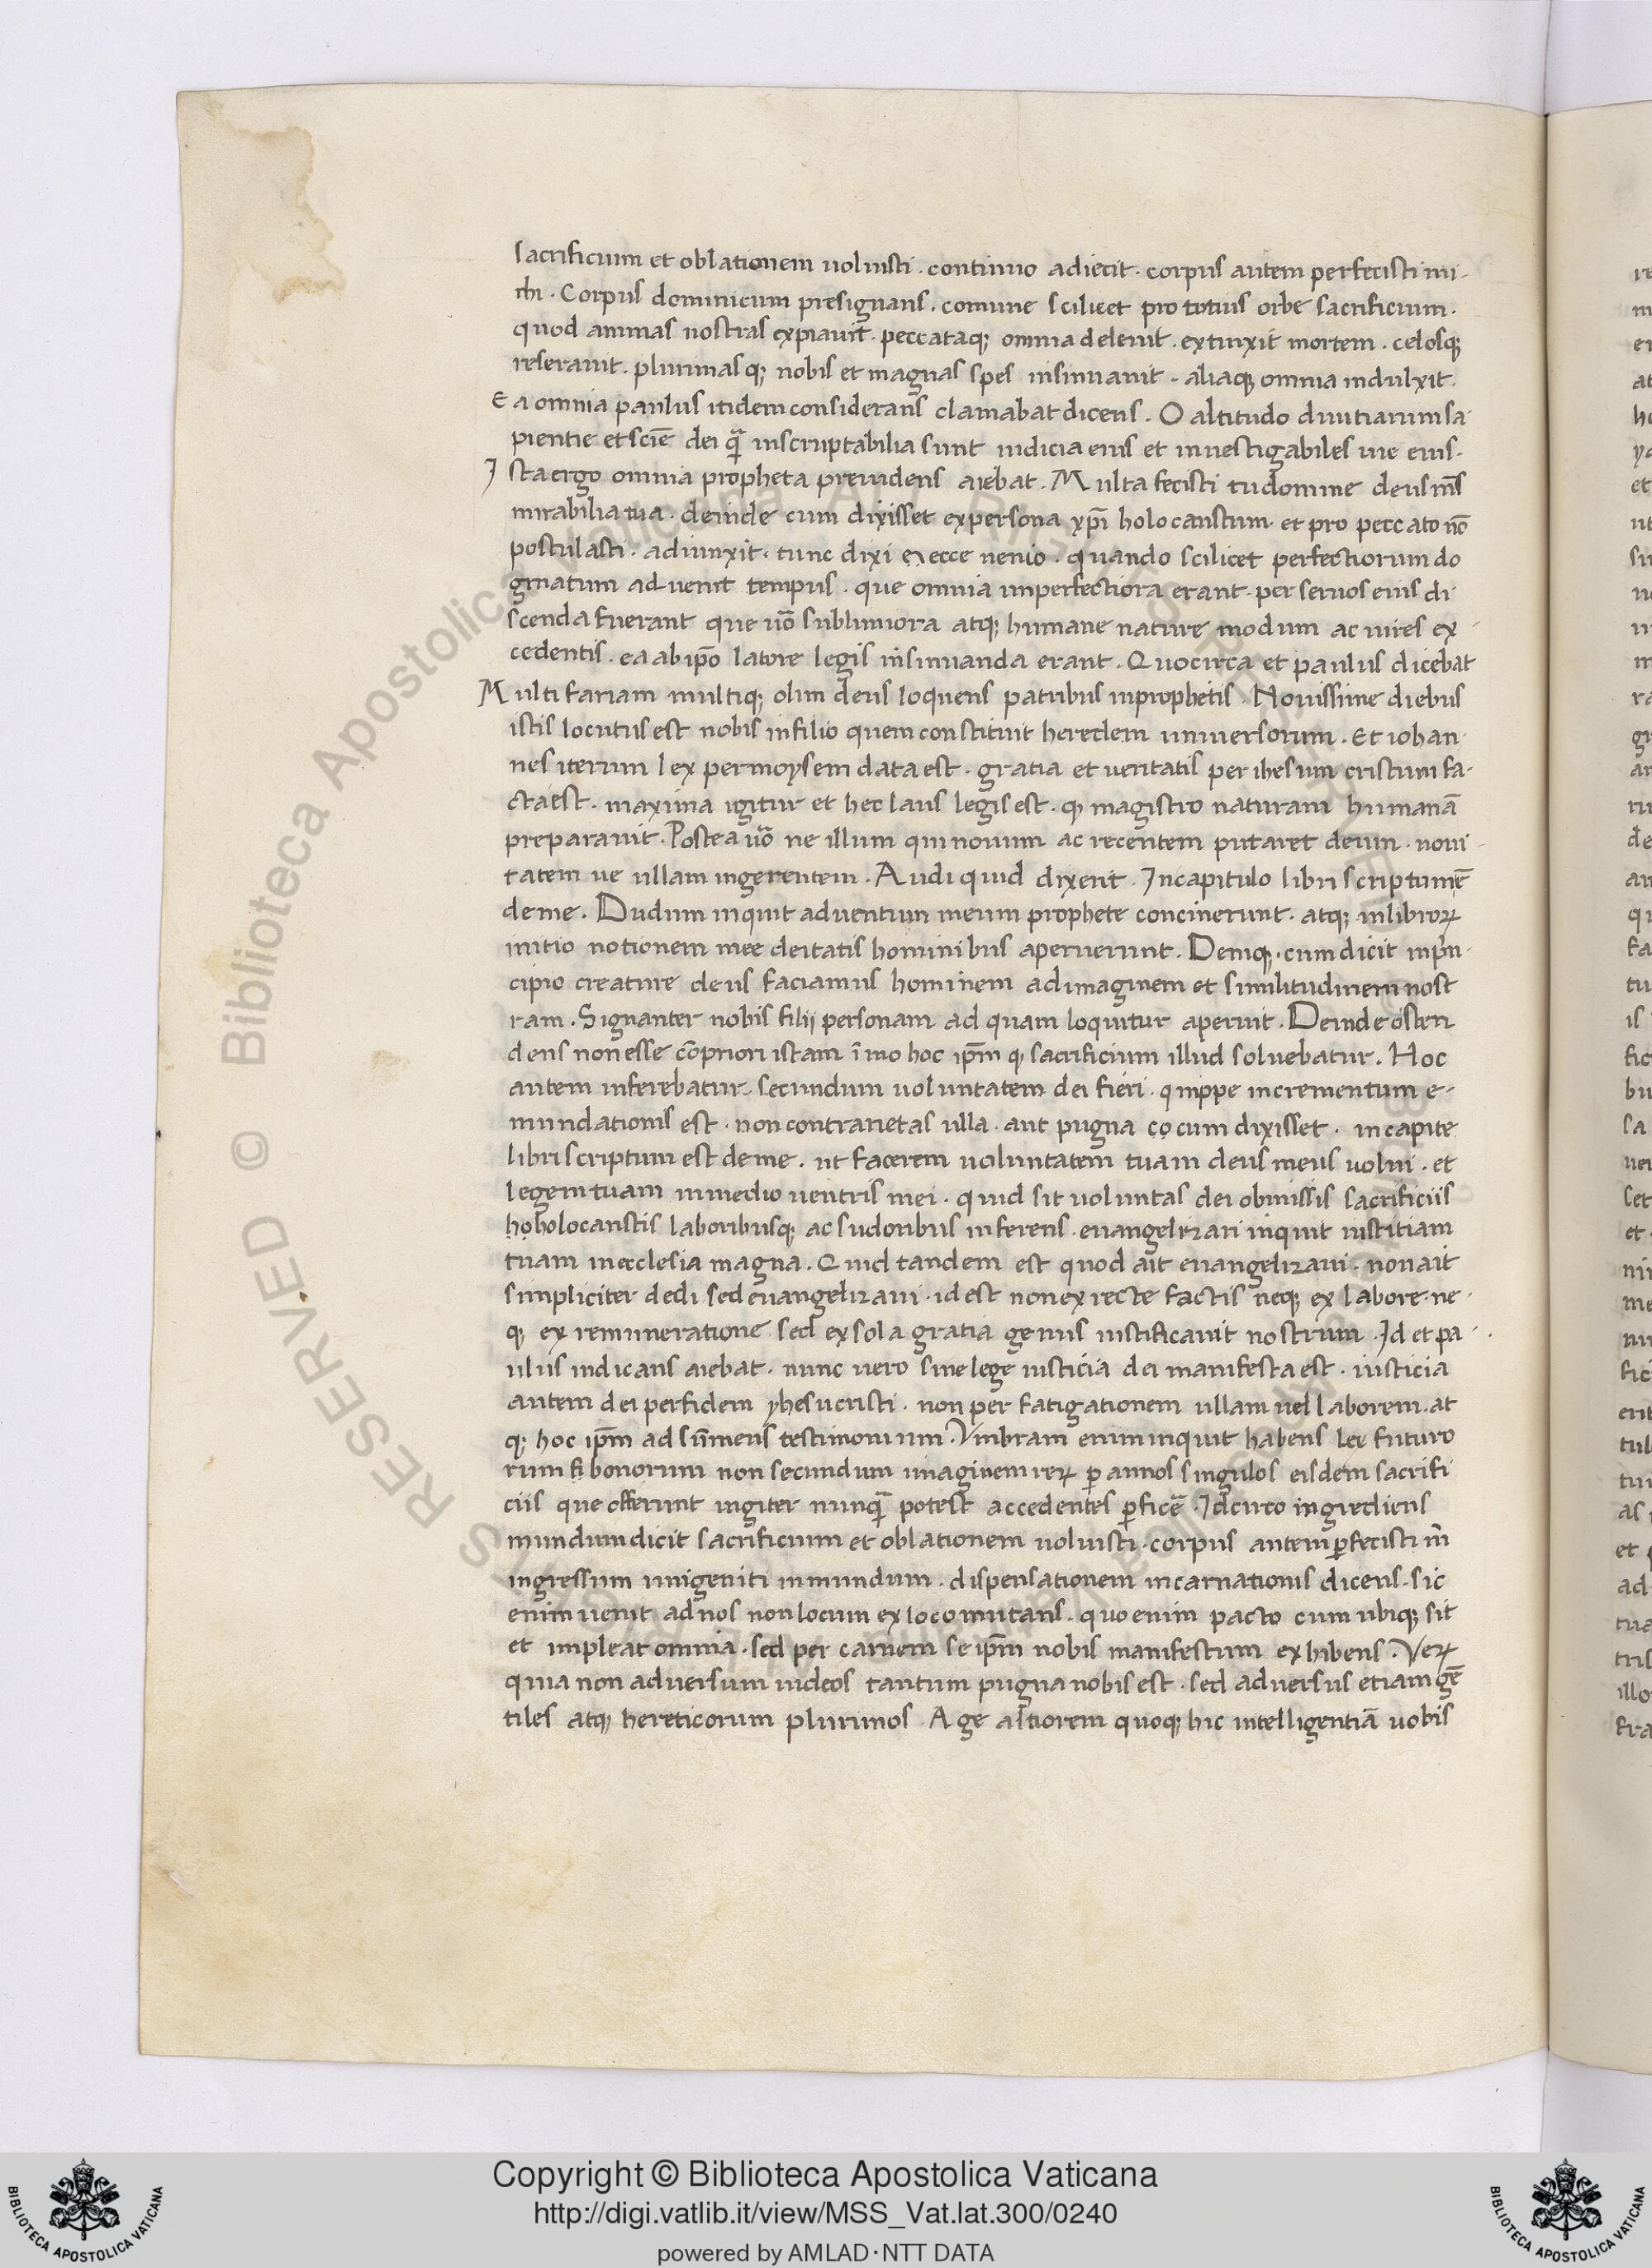 sacrificium et oblationem uoluisti . continuo adiecit . corpus autem perfecisti mi-
chi . Corpus dominicum presignans . comune scilicet pro totius orbe sacrificium .
quod animas nostras expiauit . peccataq; omnia deleuit . extinxit mortem . celosq;
reserauit . plurimasq; nobis et magnas spes insinuauit . aliaq; omnia indulxit .
Ea omnia paulus itidem considerans clamabat dicens . O altitudo diuitiarum sa
pientie et sciē dei q̄ inscruptabilia sunt iudicia eius et inuestigabiles uie eius .
Ista ergo omnia propheta preuidens aiebat . Multa fecisti tu domine deus ms̄
mirabilia tua . deinde cum dixisset ex persona xp̄i holocaustum . et pro peccato nō
postulasti . adiunxit . tunc dixi ecce uenio . quando scilicet perfectiorum do
gmatum aduenit tempus . que omnia imperfectiora erant . per seruos eius di
scenda fuerant que uō sublimiora atq; humane nature modum ac uires ex
cedentis . ea ab ip̄o latore legis insinuanda erant . Quocirca et paulus dicebat
Multifariam multiq; olim deus loquens patribus in prophetis . Nouissime diebus
istis locutus est nobis in filio quem constituit heredem uniuersorum . Et iohan
nes iterum lex per moysem data est . gratia et ueritatis per ihesum cristum fa-
cta est . maxima igitur et hec laus legis est . q; magistro naturam humanā
preparauit . Postea uō ne illum qui nouum ac recentem putaret deum . noui -
tatem ue ullam ingerentem . Audi quid dixerit . In capitulo libri scriptum ē
de me . Dudum inquit aduentum meum prophete concinerunt . atq; in libroꝝ
initio notionem mee deitatis hominibus aperuerunt . Deniq; . cum dicit in prin-
cipio creature deus faciamus hominem ad imaginem et similitudinem nost
ram . Signanter nobis filij personam ad quam loquitur aperuit . Deinde osten
dens non esse cōpriori istam īmo hoc ip̄m q; sacrificium illud soluebatur . Hoc
autem inferebatur secundum uoluntatem dei fieri . quippe incrementum e-
mundationis est . non contrarietas ulla . aut pugna co cum dixisset . in capite
libri scriptum est de me . ut facerem uoluntatem tuam deus meus uolui . et
legem tuam in medio uentris mei . quid sit uoluntas dei obmissis sacrificiis
hoholocaustis laboribusq; ac sudoribus inferens . euangelizari inquit iustitiam
tuam in ecclesia magna . Quid tandem est quod ait euangelizaui . non ait
simpliciter dedi sed euangelizaui . id est non ex recte factis neq; ex labore . ne
q; ex remuneratione sed ex sola gratia genus iustificauit nostrum . Id et pa
ulus indicans aiebat . nunc uero sine lege iusticia dei manifesta est . iusticia
autem dei per fidem yhesu cristi . non per fatigationem ullam uel laborem . at
q; hoc ip̄m ad sūmens testimonium . Vmbram enim inquit habens lex futuro
rum bonorum non secundum imaginem reꝝ ꝑ annos singulos eisdem sacrifi
ciis que offerunt iugiter nunq̄ potest accedentes ꝑficē . Idcirco ingrediens
mundum dicit sacrificium et oblationem uoluisti . corpus autem ꝑfecisti m̄
ingressum unigeniti in mundum . dispensationem incarnationis dicens . sic
enim uenit ad nos non locum ex loco mutans . quo enim pacto cum ubiq; sit
et impleat omnia . sed per carnem se ip̄m nobis manifestum exhibens . Veꝝ
quia non aduersum iudeos tantum pugna nobis est . sed aduersus etiam gē
tiles atq; hereticorum plurimos . Age altiorem quoq; hic intelligentiā uobis
Copyright © Biblioteca Apostolica Vaticana
http://digi.vatlib.it/view/MSS_Vat.lat.300/0240
powered by AMLAD·NTT DATA